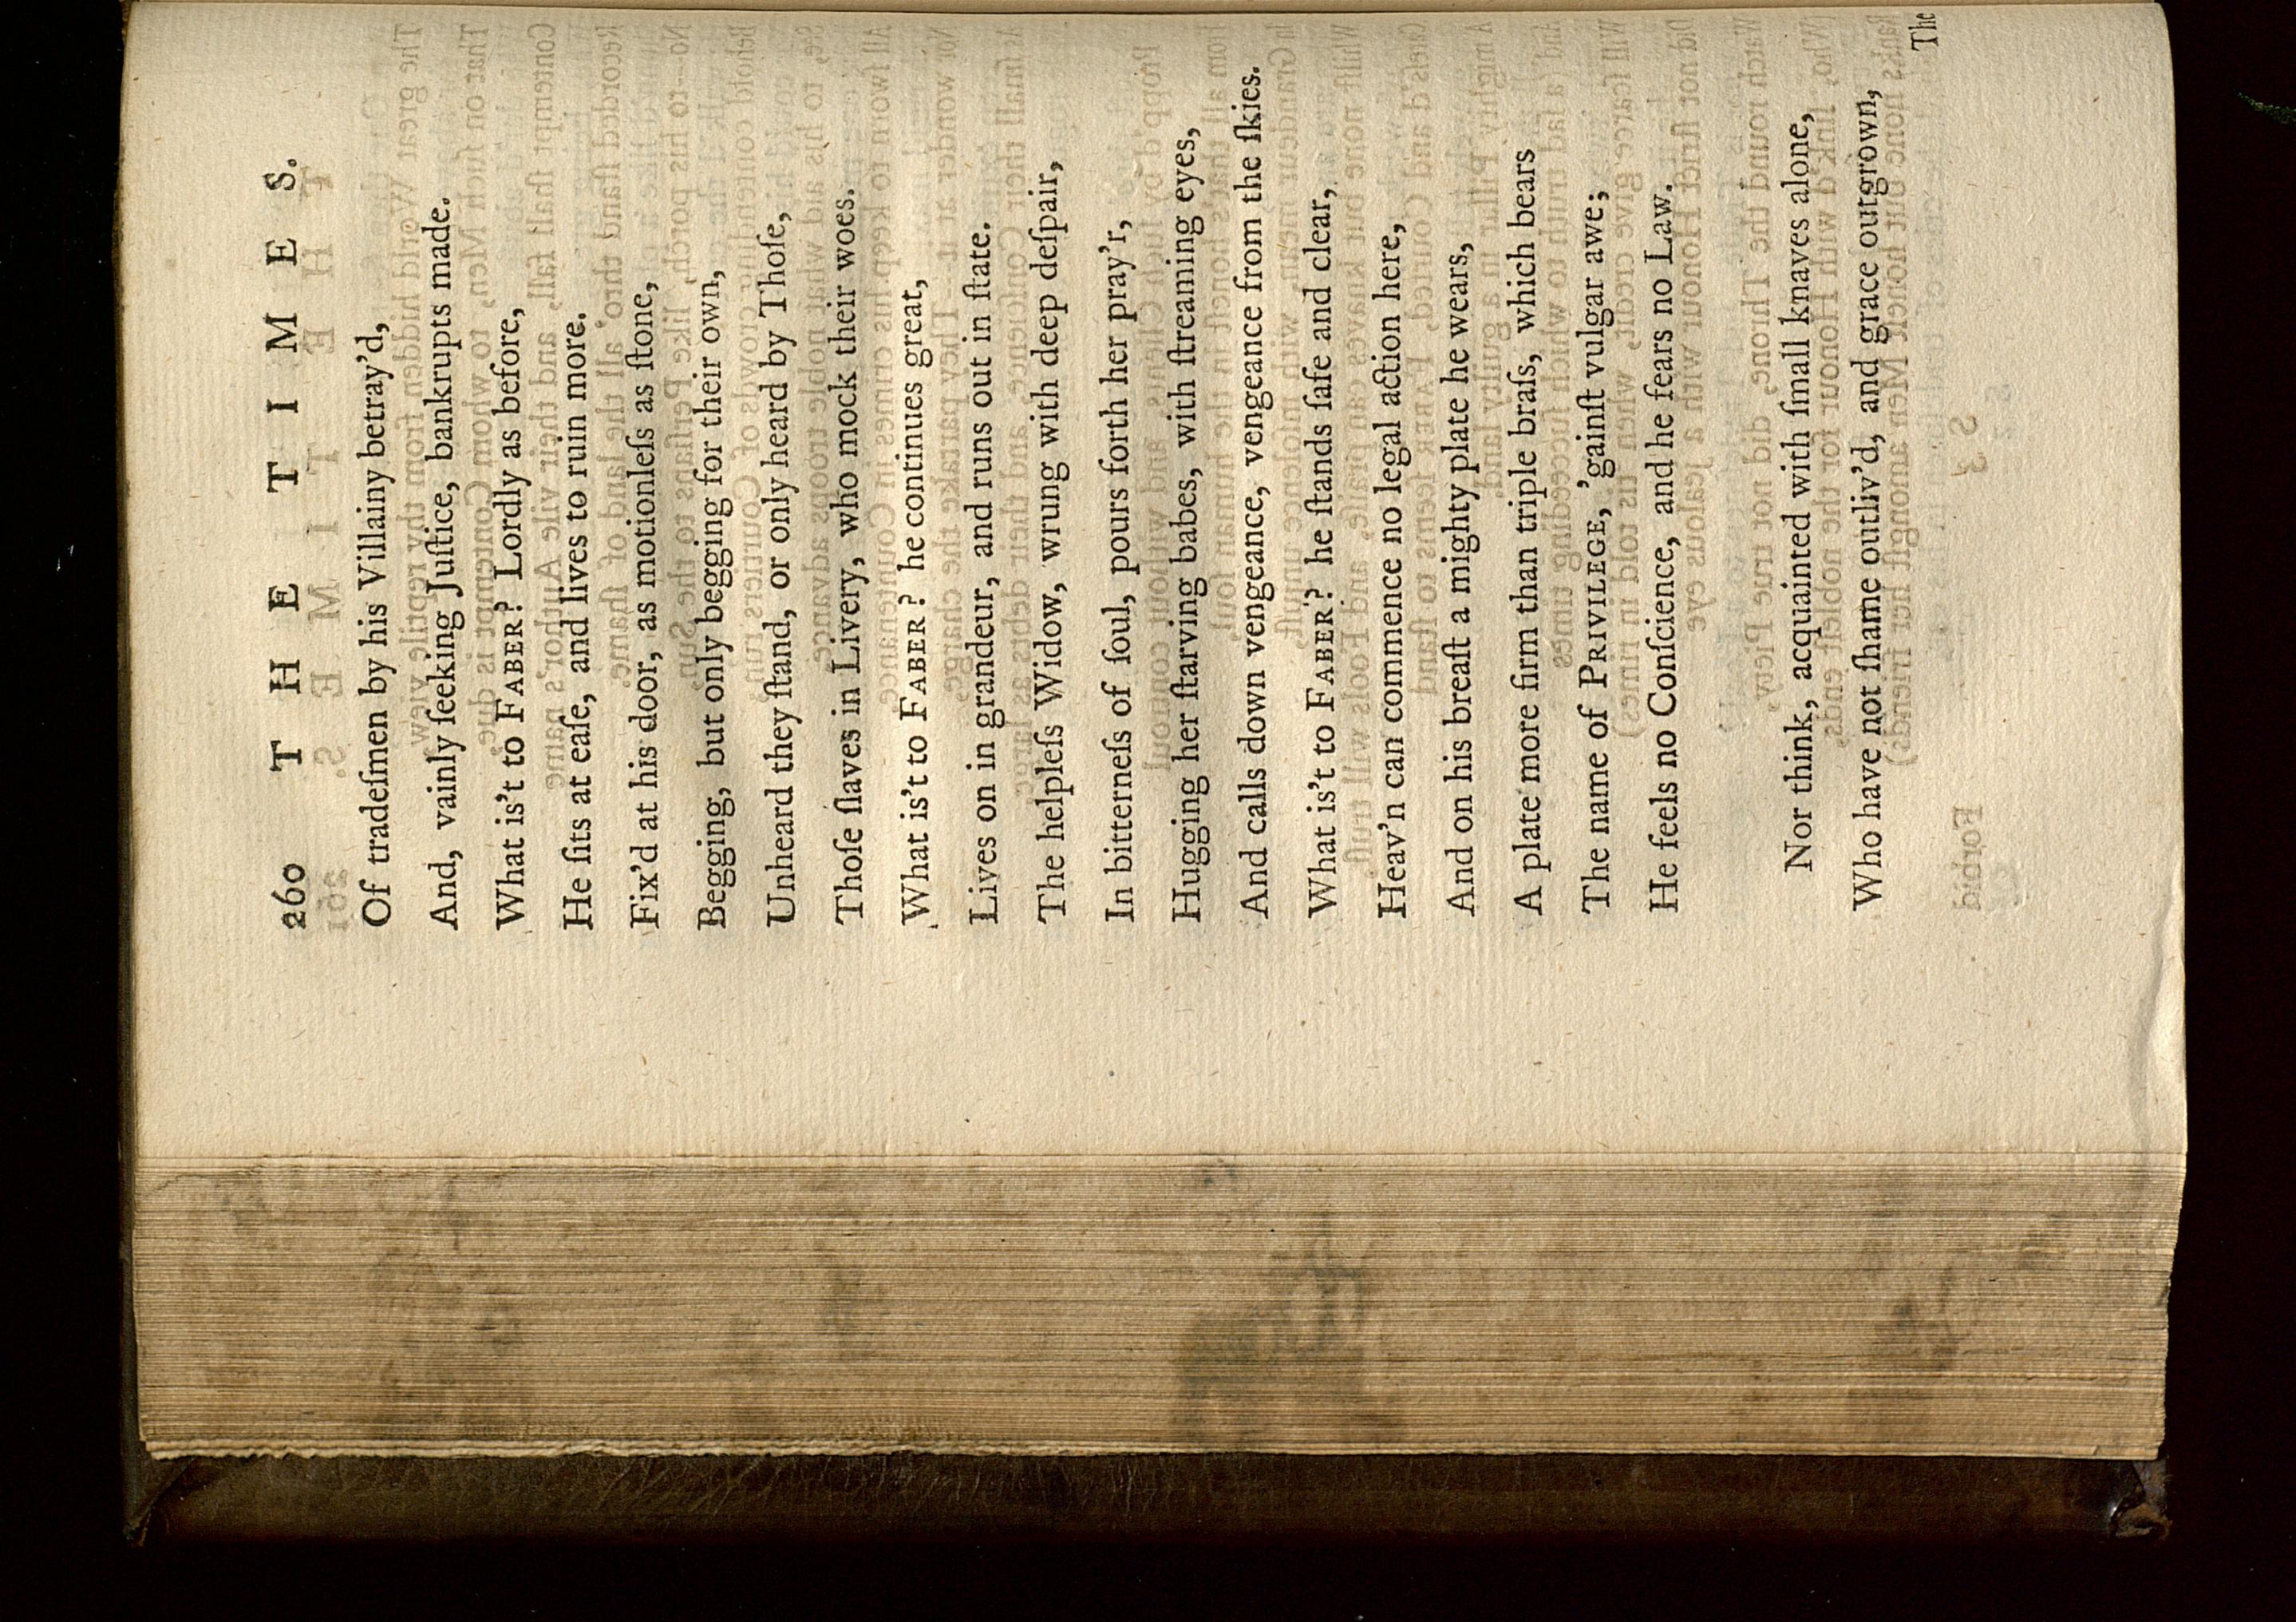 260 T H E T I M E S.
Of tradeſmen by his Villainy betray'd,
And, vainly ſeeking Juſtice, bankrupts made.
What is't to FABER? Lordly as before,
He ſits at eaſe, and lives to ruin more.
Fix'd at his door, as motionleſs as ſtone,
Begging, but only begging for their own,
Unheard they ſtand, or only heard by Thoſe,
Thoſe ſlaves in Livery, who mock their woes.
What is't to FABER? he continues great,
Lives on in grandeur, and runs out in ſtate.
The helpleſs Widow, wrung with deep deſpair,
In bitterneſs of ſoul, pours forth her pray'r,
Hugging her ſtarving babes, with ſtreaming eyes,
And calls down vengeance, vengeance from the ſkies.
What is't to FABER? he ſtands ſafe and clear,
Heav'n can commence no legal action here,
And on his breaſt a mighty plate he wears,
A plate more firm than triple braſs, which bears
The name of PRIVILEGE, 'gainſt vulgar awe;
He feels no Conſcience, and he fears no Law.
Nor think, acquainted with ſmall knaves alone,
Who have not ſhame outliv'd, and grace outgrown,
The